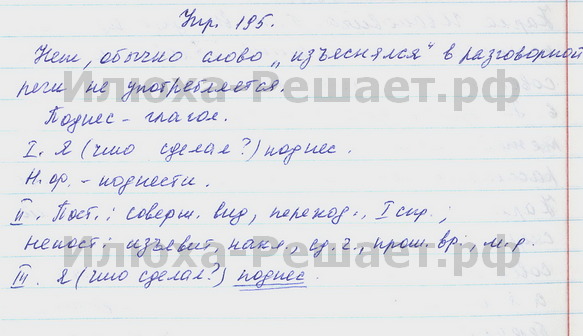 Упр. 195.
Нет, обычно слово „изъяснялся" в разговорной
речи не употребляется.
Илюха-Решает.рф
Поднес - глагол.
I. Я (что сделал?) поднес.
Н.ф. - поднести.
II. Пост.: соверш. вид, переход., I спр.;
непост: изъевит. накл., ед. ч., прош. вр., м.р.
Илюха-Решает.рф
III. Я (что сделал?) поднес.